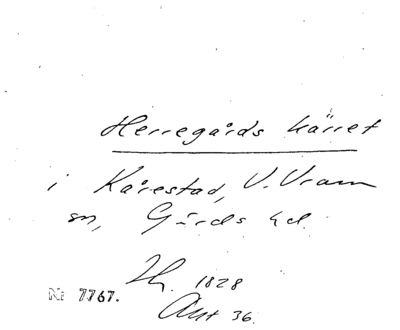 Herregårds kärret
i Kårestad, V. Vram
sn, Gärds hd.
Lh. 1828
Akt 36.
No 7767.